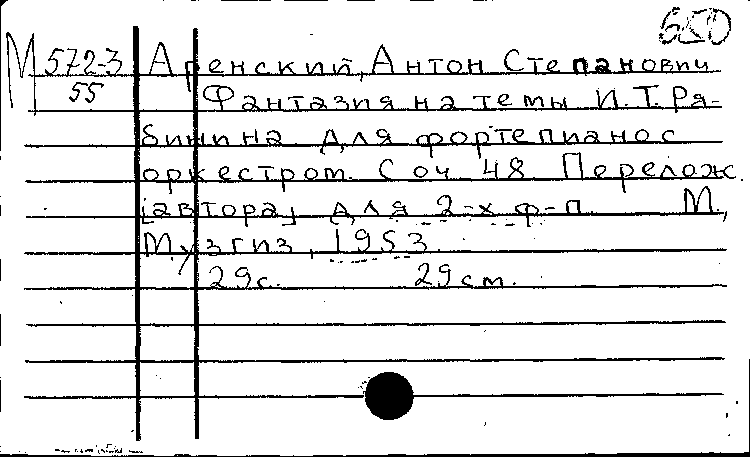 650
М 572-3 Аренский, Антон Степанович
55 Фантазия на темы И.Т. Ря-
бинина для фортепиано с
оркестром. Соч 48. Перелож.
[автора] для 2-х ф-п. М.,
Музгиз, 1953.
29с. 29 см.